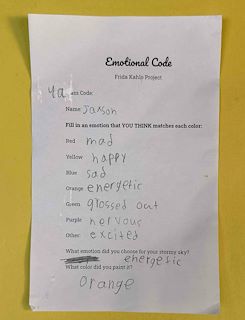 Emotional Code
Frida Kahlo Project
4a ass Code:
Name: Jaxson
Fill in an emotion that YOU THINK matches each color:
Red mad
Yellow happy
Blue sad
Orange energetic
Green grossed out
Purple nervous
Other: excited
What emotion did you choose for your stormy sky?
energetic
What color did you paint it?
orange